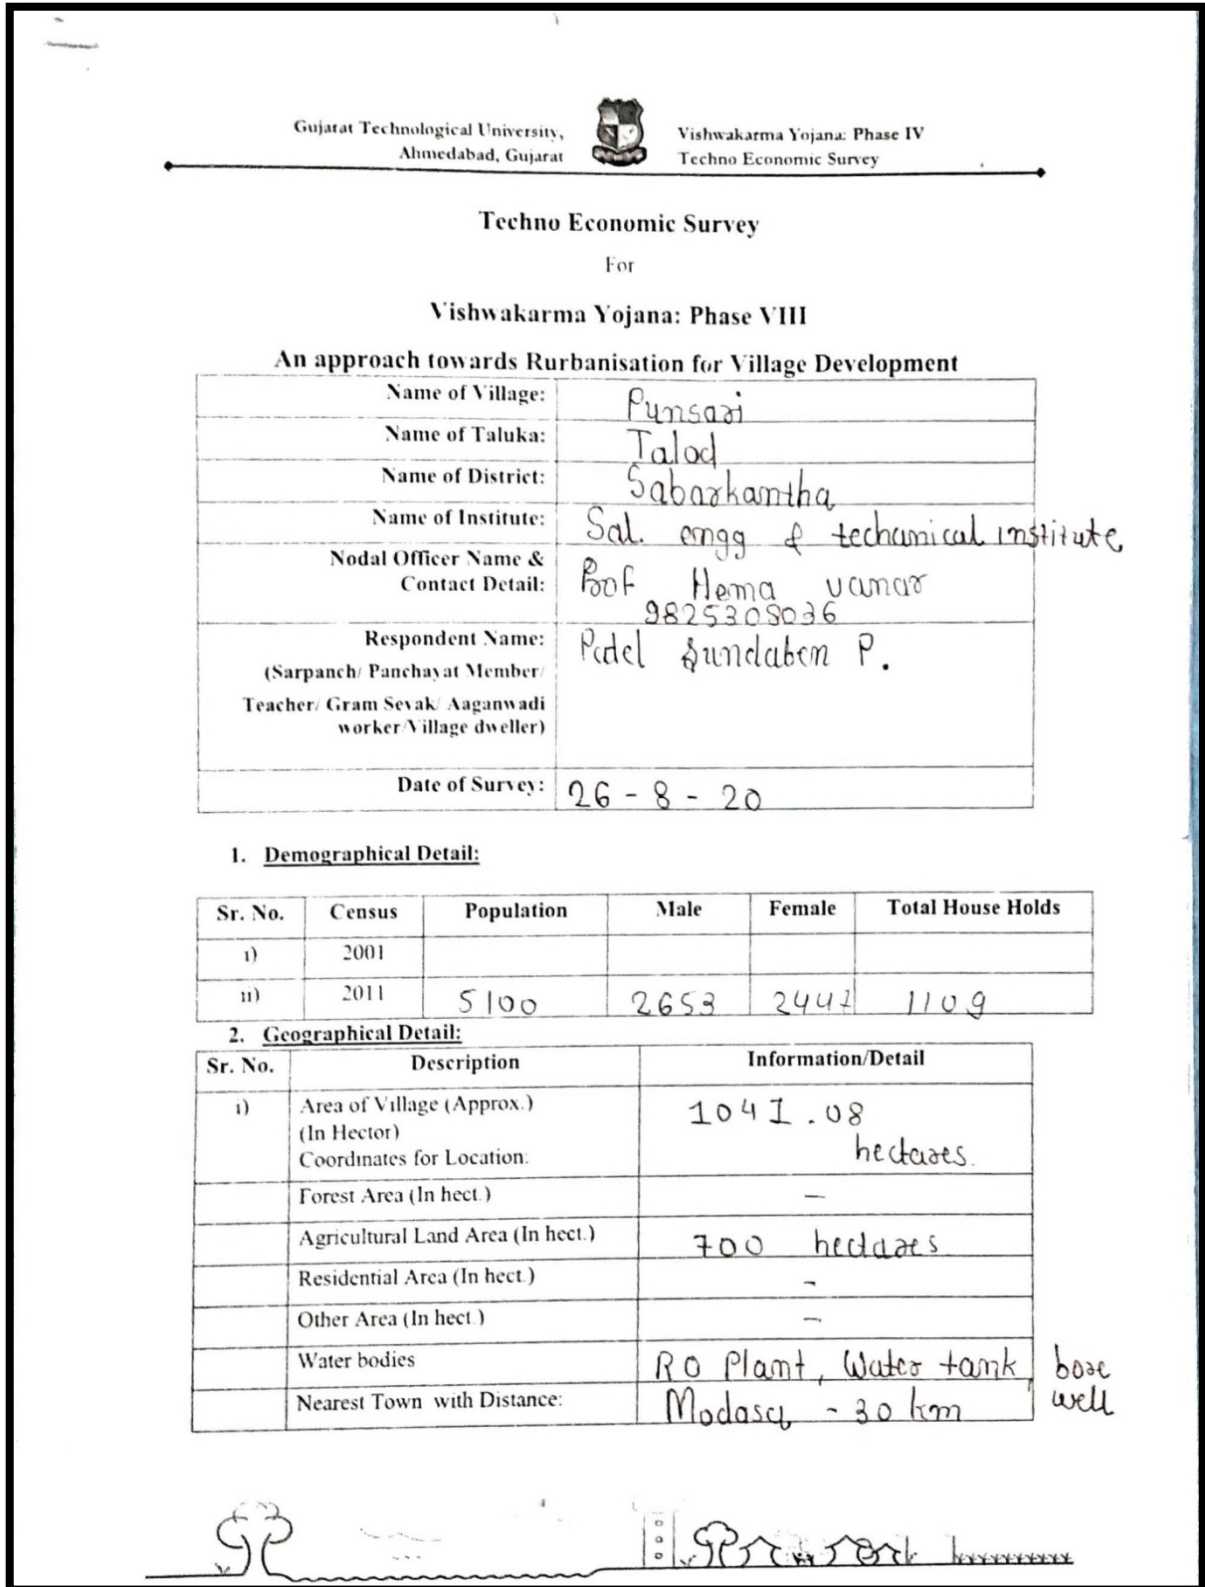 Gujarat Technological University,
Ahmedabad, Gujarat
Vishwakarma Yojana: Phase IV
Techno Economic Survey
Techno Economic Survey
For
Vishwakarma Yojana: Phase VIII
An approach towards Rurbanisation for Village Development
Name of Village: Punsari
Name of Taluka: Talod
Name of District: Sabarkantha
Name of Institute: Sal. engg & techanical institute
Nodal Officer Name & Prof Hema vanar
Contact Detail: 9825309036
Respondent Name: Patel Sundaben P.
(Sarpanch/ Panchayat Member/
Teacher/ Gram Sevak/ Aaganwadi
worker/Village dweller)
Date of Survey: 26 - 8 - 20
1. Demographical Detail:
Sr. No. Census Population Male Female Total House Holds
i) 2001
ii) 2011 5100 2653 2447 1109
2. Geographical Detail:
Sr. No. Description Information/Detail
i) Area of Village (Approx.) 1041.08
(In Hector)
Coordinates for Location: hectares.
Forest Area (In hect.) –
Agricultural Land Area (In hect.) 700 hectares
Residential Area (In hect.) -
Other Area (In hect.) –
Water bodies RO Plant, Water tank, bore
well
Nearest Town with Distance: Modasa - 30 km